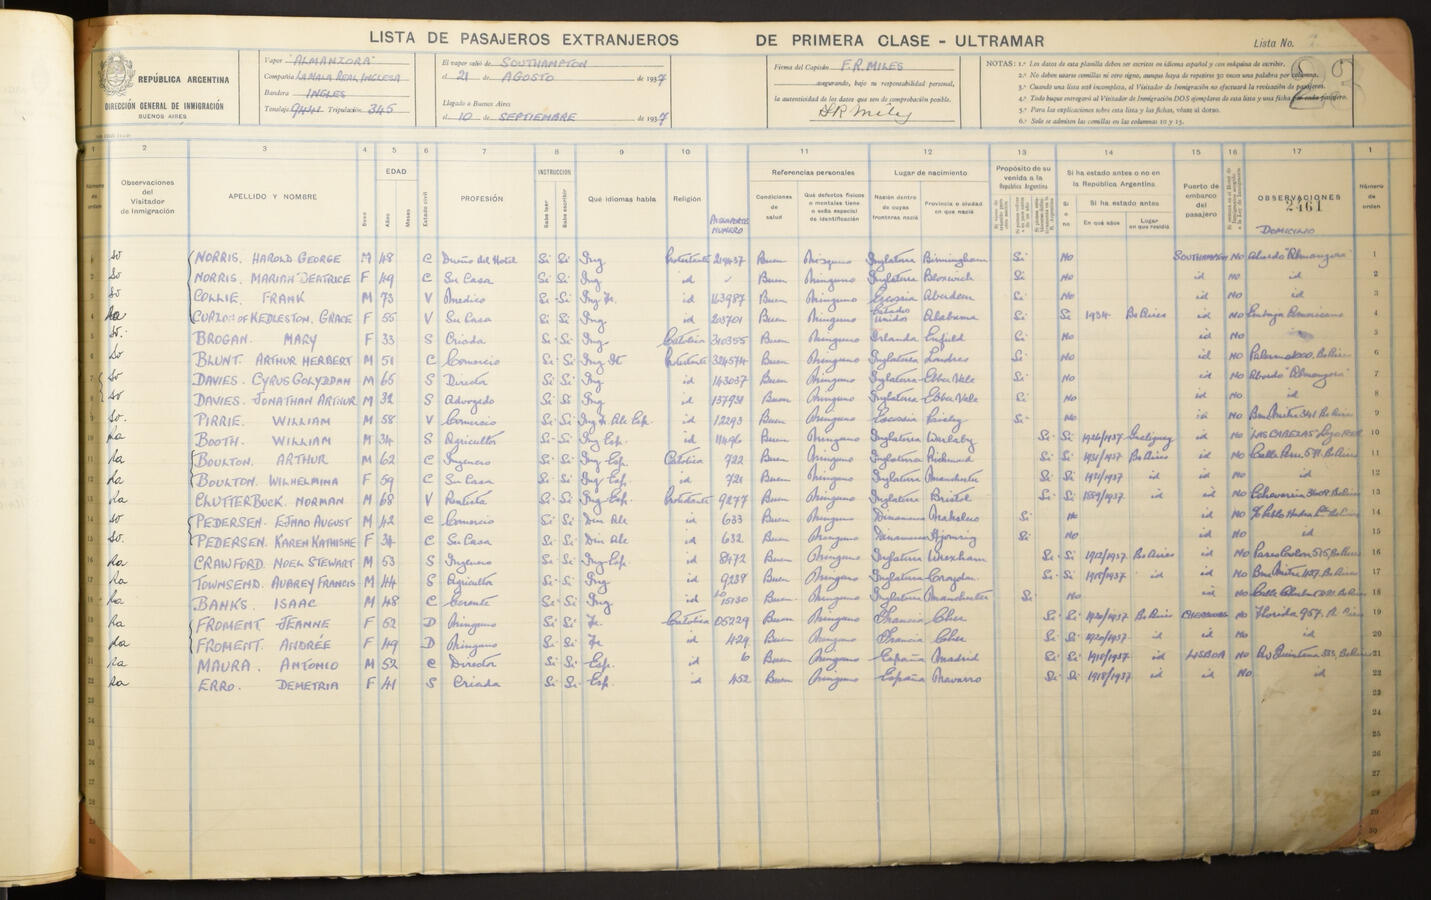 LISTA DE PASAJEROS EXTRANJEROS DE PRIMERA CLASE - ULTRAMAR Lista No.
REPÚBLICA ARGENTINA
DIRECCIÓN GENERAL DE INMIGRACIÓN
BUENOS AIRES
Vapor "ALMANZORA"
Compañía LA MALA REAL INGLESA
Bandera INGLES
Tonelaje 9441 Tripulación 345
El vapor salió de SOUTHAMPTON
el 21 de AGOSTO de 1937
Llegado a Buenos Aires
el 10 de SEPTIEMBRE de 1937
Firma del Capitán F.R. MILES
asegurando, bajo su responsabilidad personal,
la autenticidad de los datos que son de comprobación posible.
NOTAS: 1.º Los datos de esta planilla deben ser escritos en idioma español y con máquina de escribir.
2.º No deben usarse comillas ni otro signo, aunque haya de repetirse 30 veces una palabra por columna.
3.º Cuando una lista esté incompleta, el Visitador de Inmigración no efectuará la revisación de pasajeros.
4.º Todo buque entregará al Visitador de Inmigración DOS ejemplares de esta lista y una ficha por cada pasajero.
5.º Para las explicaciones sobre esta lista y las fichas, véase al dorso.
6.º Solo se admiten las comillas en las columnas 10 y 15.
1 2 3 4 5 6 7 8 9 10 11 12 13 14 15 16 17 1
Número de orden
Observaciones del Visitador de Inmigración
APELLIDO Y NOMBRE
Sexo
EDAD
Años Meses
Estado civil
PROFESIÓN
INSTRUCCIÓN
Sabe leer Sabe escribir
Qué idiomas habla
Religión
PASAPORTE NUMERO
Referencias personales
Condiciones de salud
Qué defectos físicos o mentales tiene o seña especial de identificación
Lugar de nacimiento
Nación dentro de cuyas fronteras nació
Provincia o ciudad en que nació
Propósito de su venida a la República Argentina
Si ha estado antes o no en la República Argentina
Si o no
Si ha estado antes
En qué años
Lugar en que residía
Puerto de embarco del pasajero
OBSERVACIONES
2461
DOMICILIO
Número de orden
NORRIS. HAROLD GEORGE M 48 C Dueño del Hotel Si Si Ing Protestante 219437 Buen Ninguno Inglaterra Birmingham Si No SOUTHAMPTON NO Abordo "Almanzora" 1
NORRIS. MARIAH BEATRICE F 49 C Su Casa Si Si Ing id Buen Ninguno Inglaterra Bloxwich Si No id NO id 2
COLLIE. FRANK M 73 V Medico Si Si Ing Fr. id 163987 Buen Ninguno Escocia Aberdeen Si No id NO id 3
CURZON of KEDLESTON. GRACE F 55 V Su Casa Si Si Ing id 203701 Buen Ninguno Estados Unidos Alabama Si Si 1934 Bs Aires id NO Embaja Americana 4
BROGAN. MARY F 33 S Criada Si Si Ing Catolica 310355 Buen Ninguno Irlanda Enfield Si No id NO 5
BLUNT. ARTHUR HERBERT M 51 C Comercio Si Si Ing It Protestante 324574 Buen Ninguno Inglaterra Londres Si No id NO 6
DAVIES. CYRUS GOLYDDAN M 65 S Director Si Si Ing id 143037 Buen Ninguno Inglaterra Ebbw Vale Si No id NO Abordo "Almanzora" 7
DAVIES. JONATHAN ARTHUR M 32 S Advogado Si Si Ing id 137931 Buen Ninguno Inglaterra Ebbw Vale Si No id NO id 8
PIRRIE. WILLIAM M 58 V Comercio Si Si Ing Fr. Ale Esp. id 12293 Buen Ninguno Escocia Paisley Si No id NO Bme Mitre 341 Bs Aires 9
BOOTH. WILLIAM M 34 S Agricultor Si Si Ing Esp. id 11496 Buen Ninguno Inglaterra Si Si 1926/1937 id NO "LAS CABEZAS" 10
BOULTON. ARTHUR M 62 C Ingeniero Si Si Ing Esp. Catolica 722 Buen Ninguno Inglaterra Richmond Si Si 1931/1937 Bs Aires id NO Calle Peru 571 Bs Aires 11
BOULTON. WILHELMINA F 59 C Su Casa Si Si Ing Esp. id 721 Buen Ninguno Inglaterra Manchester Si Si 1931/1937 id id NO id 12
CLUTTERBUCK. NORMAN M 68 V Rentista Si Si Ing Esp. Protestante 9277 Buen Ninguno Inglaterra Bristol Si Si 1889/1937 id id NO Echeverria Bs Aires 13
PEDERSEN. EJHAO AUGUST M 42 C Comercio Si Si Din Ale id 633 Buen Ninguno Dinamarca Si No id NO 14
PEDERSEN. KAREN KATHISHE F 34 C Su Casa Si Si Din Ale id 632 Buen Ninguno Dinamarca Hjorring Si No id NO id 15
CRAWFORD. NOEL STEWART M 53 S Ingeniero Si Si Ing Esp. id 8472 Buen Ninguno Inglaterra Wrexham Si Si 1912/1937 Bs Aires id NO Paseo Colon 515, Bs Aires 16
TOWNSEND. AUBREY FRANCIS M 44 S Agricultor Si Si Ing id 9238 Buen Ninguno Inglaterra Croydon Si Si 1915/1937 id id NO Bme Mitre 437. Bs Aires 17
BANKS. ISAAC M 48 C Gerente Si Si Ing id 15130 Buen Ninguno Inglaterra Manchester Si No id NO 18
FROMENT. JEANNE F 52 D Ninguno Si Si Fr. Catolica 05229 Buen Ninguno Francia Cher Si Si 1920/1937 Bs Aires CHERBOURG NO Florida 957. B. Aires 19
FROMENT. ANDRÉE F 49 D Ninguno Si Si Fr id 429 Buen Ninguno Francia Cher Si Si 1920/1937 id id NO id 20
MAURA. ANTONIO M 52 C Director Si Si Esp. id 6 Buen Ninguno España Madrid Si Si 1910/1937 id LISBOA NO Pte Quintana 333, Bs Aires 21
ERRO. DEMETRIA F 41 S Criada Si Si Esp. id 452 Buen Ninguno España Navarro Si Si 1918/1937 id id NO id 22
23
24
25
26
27
28
29
30